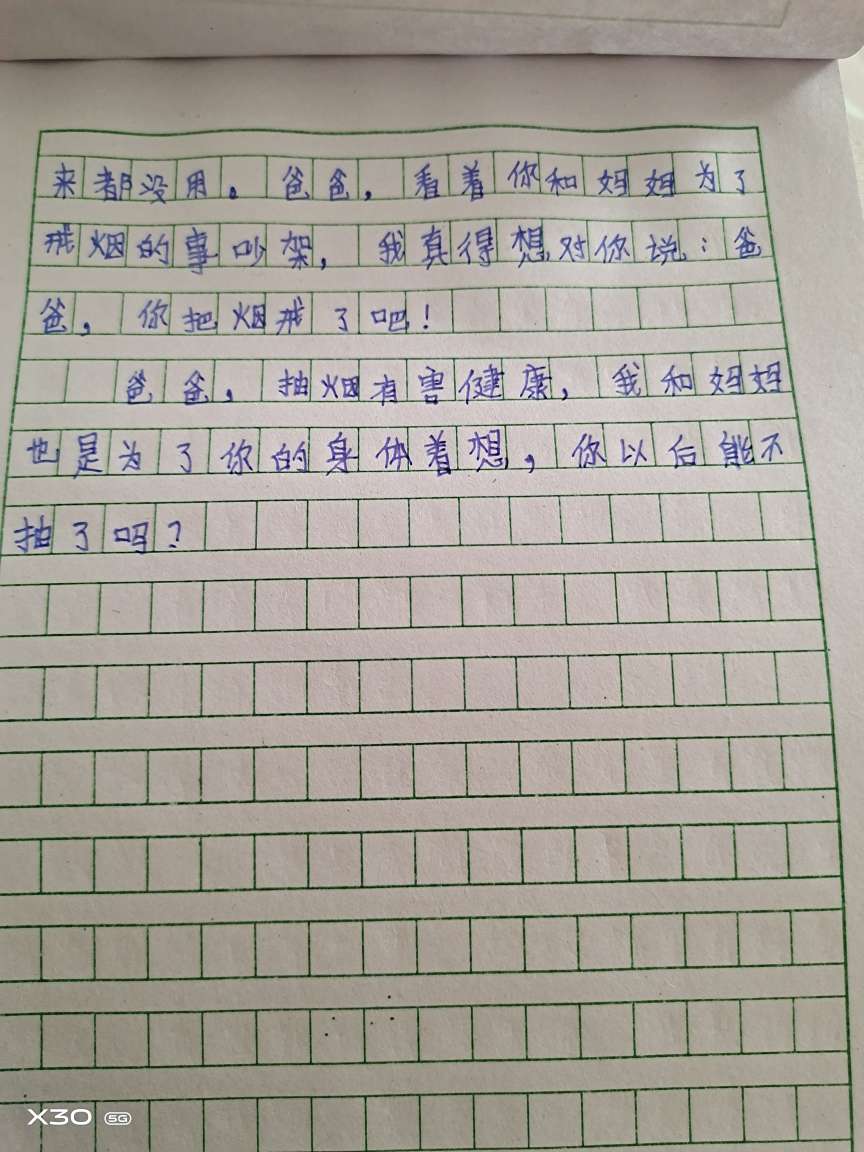 来都没用。爸爸，看着你和妈妈为了
戒烟的事吵架，我真得想对你说：爸
爸，你把烟戒了吧！
爸爸，抽烟有害健康，我和妈妈
也是为了你的身体着想，你以后能不
抽了吗？
X30 5G